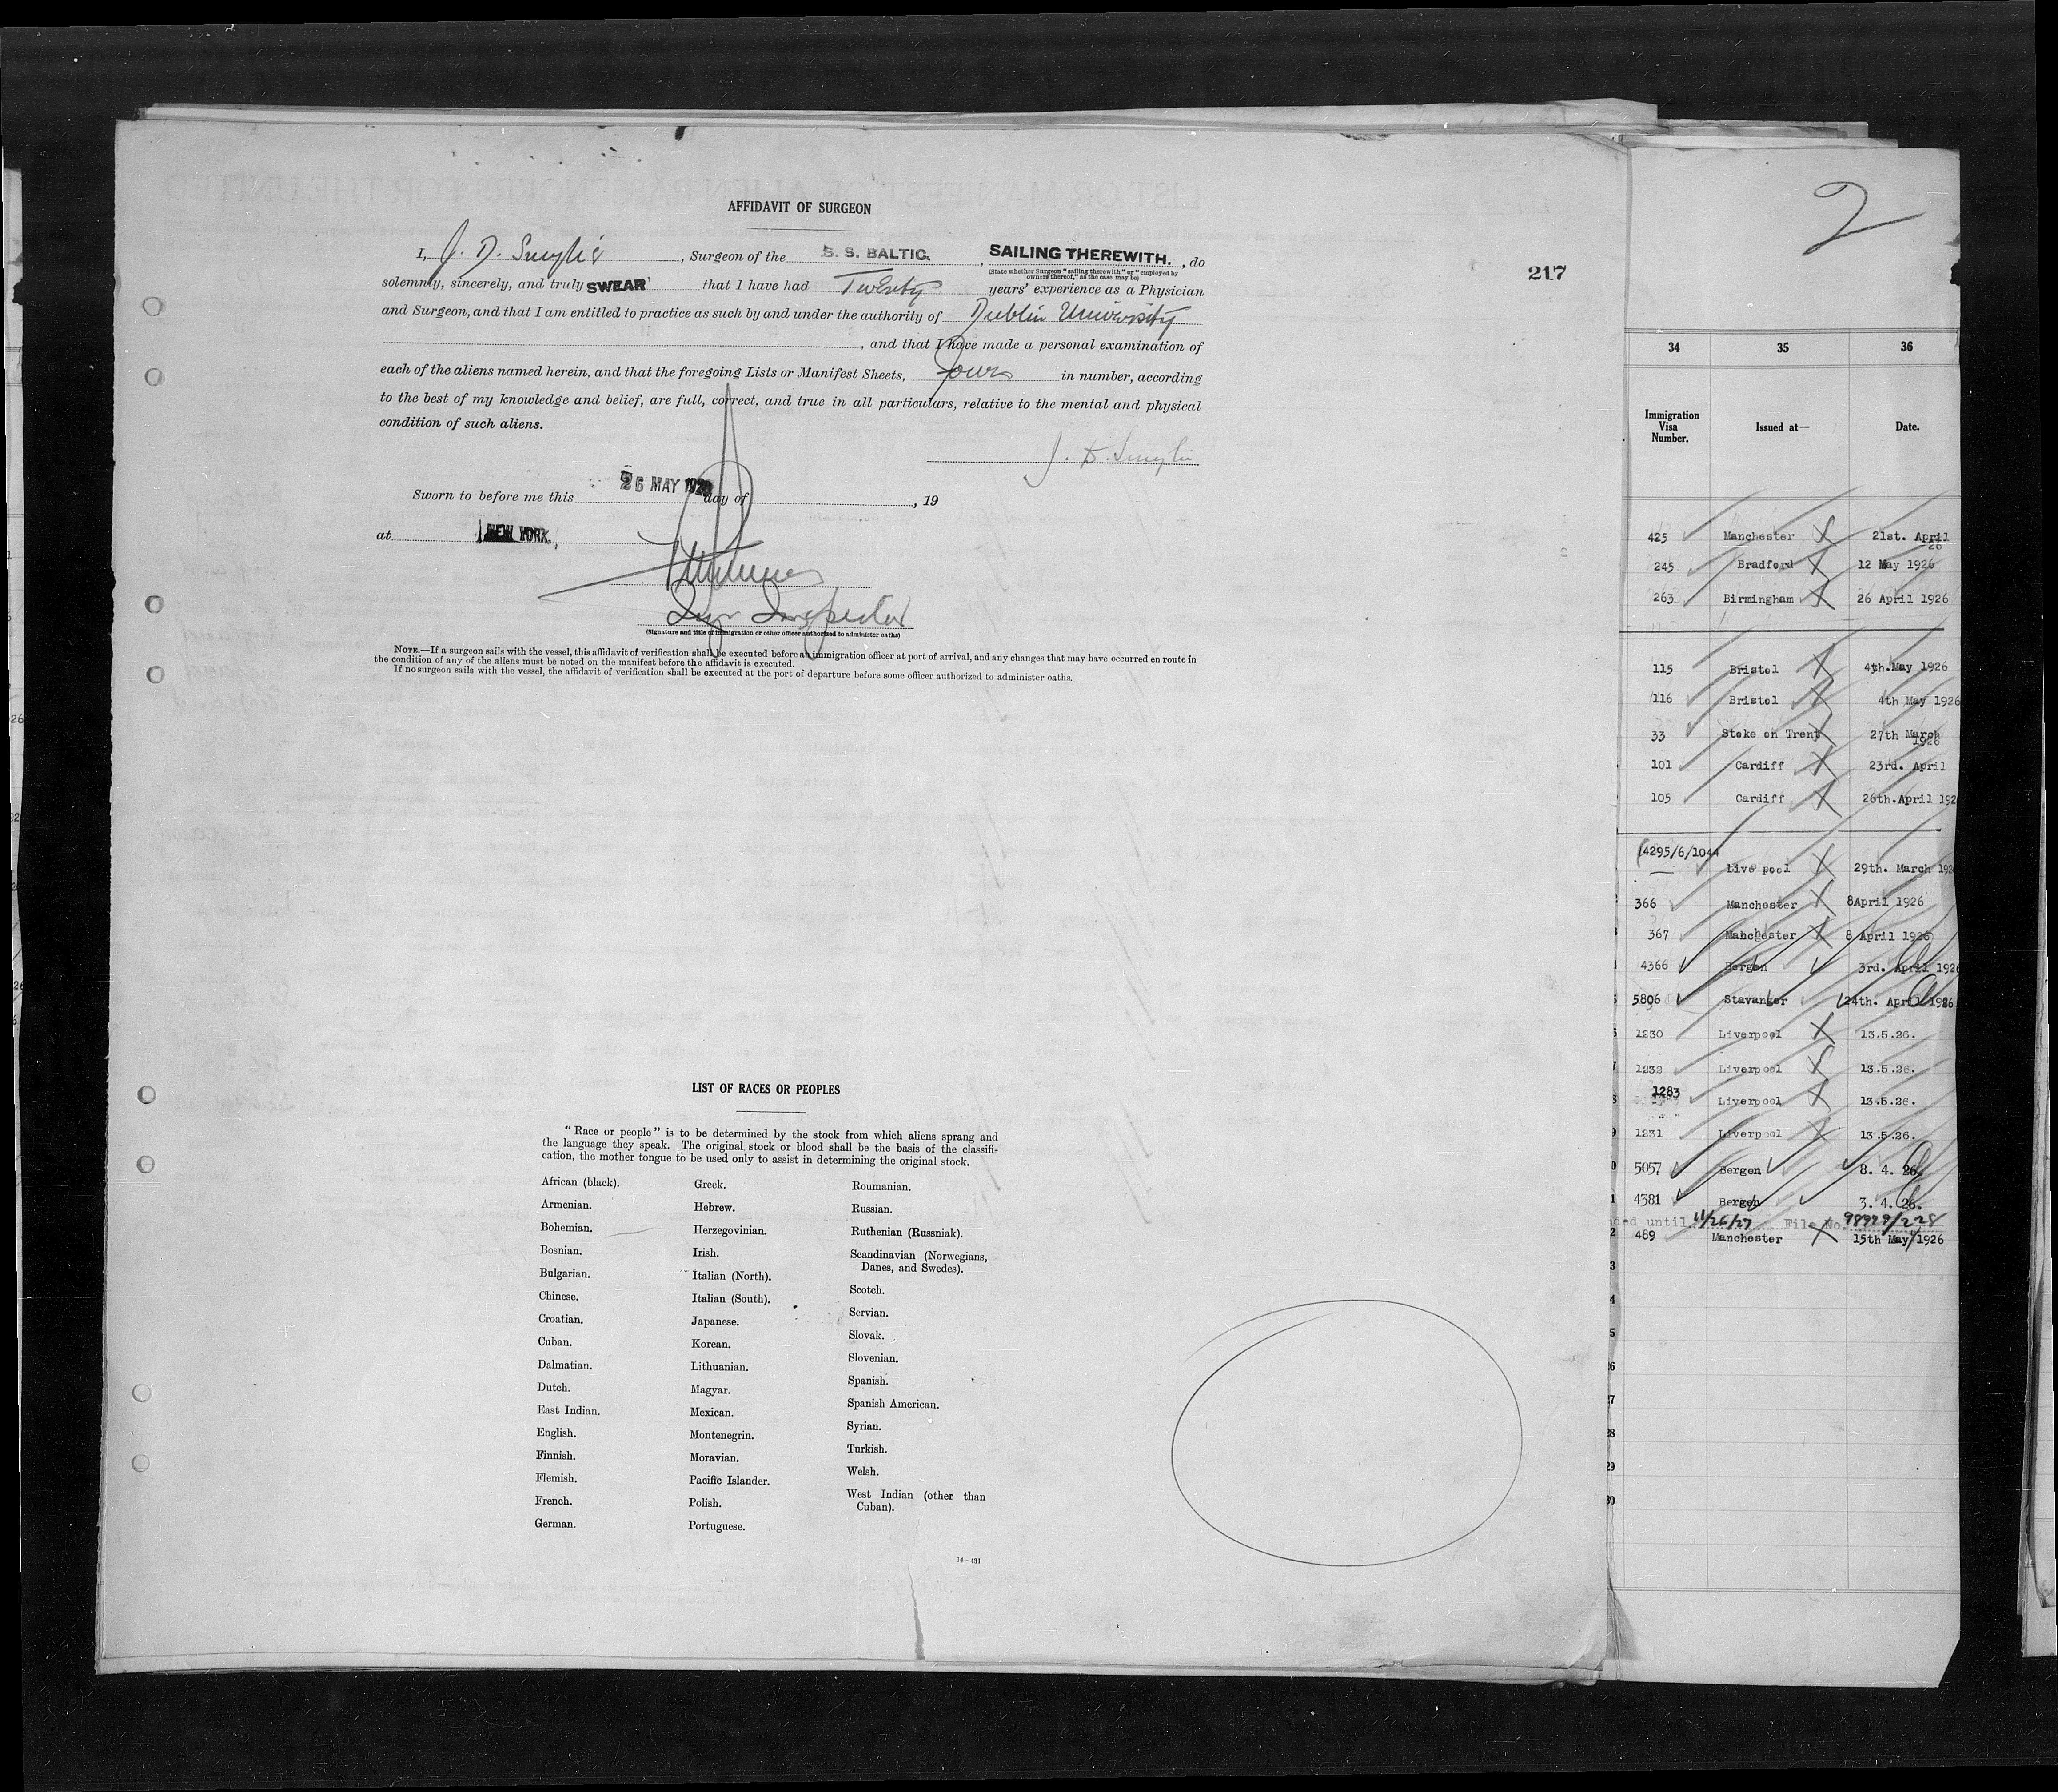 AFFIDAVIT OF SURGEON
I, J. D. , Surgeon of the S. S. BALTIC. , SAILING THEREWITH. , do
(State whether Surgeon "sailing therewith" or "employed by
owners thereof," as the case may be)
solemnly, sincerely, and truly SWEAR that I have had Twenty years' experience as a Physician
and Surgeon, and that I am entitled to practice as such by and under the authority of Dublin University
, and that I have made a personal examination of
each of the aliens named herein, and that the foregoing Lists or Manifest Sheets, in number, according
to the best of my knowledge and belief, are full, correct, and true in all particulars, relative to the mental and physical
condition of such aliens.
J. D.
Sworn to before me this 26 MAY day of , 19
at NEW YORK.
Inspector
(Signature and title of immigration or other officer authorized to administer oaths)
NOTE.—If a surgeon sails with the vessel, this affidavit of verification shall be executed before an immigration officer at port of arrival, and any changes that may have occurred en route in
the condition of any of the aliens must be noted on the manifest before the affidavit is executed.
If no surgeon sails with the vessel, the affidavit of verification shall be executed at the port of departure before some officer authorized to administer oaths.
217
LIST OF RACES OR PEOPLES
"Race or people" is to be determined by the stock from which aliens sprang and
the language they speak. The original stock or blood shall be the basis of the classifi-
cation, the mother tongue to be used only to assist in determining the original stock.
African (black).
Armenian.
Bohemian.
Bosnian.
Bulgarian.
Chinese.
Croatian.
Cuban.
Dalmatian.
Dutch.
East Indian.
English.
Finnish.
Flemish.
French.
German.
Greek.
Hebrew.
Herzegovinian.
Irish.
Italian (North).
Italian (South).
Japanese.
Korean.
Lithuanian.
Magyar.
Mexican.
Montenegrin.
Moravian.
Pacific Islander.
Polish.
Portuguese.
Roumanian.
Russian.
Ruthenian (Russniak).
Scandinavian (Norwegians,
Danes, and Swedes).
Scotch.
Servian.
Slovak.
Slovenian.
Spanish.
Spanish American.
Syrian.
Turkish.
Welsh.
West Indian (other than
Cuban).
14—431
2
34 35 36
Immigration
Visa
Number.
Issued at—
Date.
425 Manchester 21st. April
26
245 Bradford 12 May 1926
263 Birmingham 26 April 1926
115 Bristol 4th.May 1926
116 Bristol 4th May 1926
33 Stoke on Trent 27th March
1926
101 Cardiff 23rd. April
105 Cardiff 26th.April 192
4295/6/1044
Live pool 29th. March 192
366 Manchester 8April 1926
367 Mahchester 8 April 1926
4366 Bergen 3rd. April 1926
5806 Stavanger 24th. April 1926
1230 Liverpool 13.5.26.
1232 Liverpool 13.5.26.
1283 Liverpool 13.5.26.
1231 Liverpool 13.5.26.
5057 Bergen 8. 4. 26.
4381 Bergen 3. 4. 26.
ded until 11/26/27 File No. 98979/228
489 Manchester 15th May 1926